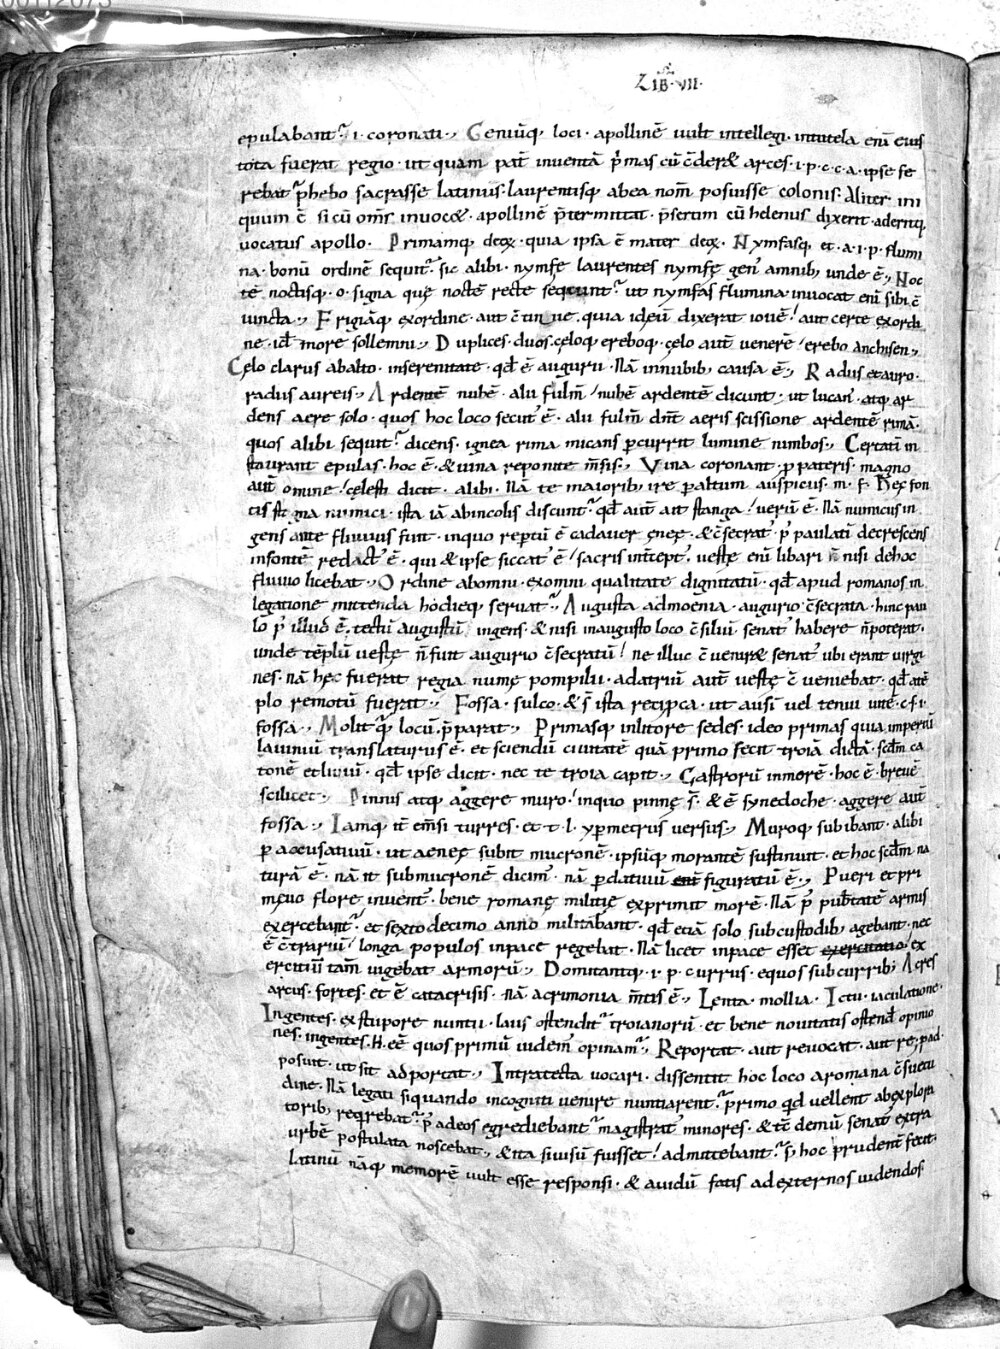 00112073
LIB̅·VII·
epulabant᷑ ·i· coronati·, Geniūq; loci · apollinē uult intellegi · intutela enī eius
tota fuerat regio · ut quam pat᷑ inventā p᷑mas cū c̄der& arces · i · p · c · c · a · ipse fe
rebat p᷑hebo sacrasse latinus · laurentisq; abea nom̄ posuisse colonis · Aliter ini
quum ē si cū om̄s invoc& · apollinē p̄termittat · p̄sertim cū helenus dixerit · aderitq;
vocatus apollo · Primamq; deoꝝ · quia ipsa ē mater deoꝝ · Nymfasq; et · a · i · p · flumi
na · bonū ordinē sequit᷑ · sic alibi · nymfę laurentes nymfę gen᷒ amnib; unde ē·, Noc
tē noctisq; · o · signa quę noctē recte sequunt᷑ · ut nymfas flumina invocat enī sibi c̄
iuncta·, Frigiāq; exordine · aut quia ideū dixerat iovē / aut certe exordi
ne · id᷒ more sollemni·, Duplices · duos · cęloq; ereboq; · cęlo aut̄ venerē / erebo anchisen·,
Cęlo clarus abalto · inserenitate · qd̄ ē augurii · Nā innubib; causa ē·, Radiis etauro ·
radiis aureis·, Ardentē nubē · alii fulm̄ / nubē ardentē dicunt · ut lucan᷒ · atq; ar
dens aere solo · quos hoc loco secut᷒ ē · alii fulm̄ dn̄t aeris scissione ardentē rimā ·
quos alibi sequit᷑ dicens · ignea rima micans p̱currit lumine nimbos·, Certatī in
staurant epulas · hoc ē · & uina reponite m̄sis·, Vina coronant · p̱ pateris · magno
aut̄ omine / cęlesti dicit · alibi · Nā te maiorib; ire p̱altum auspiciis · m · f · Hęc fon
tis stagna numici · ista iā abincolis discunt᷑ · qd̄ aut̄ ait stanga / verū ē · Nā numicus in
gens ante fluvius fuit · inquo rep̱tū ē cadaver ęneę · & c̄secrat᷒ · p᷒ paulatī decrescens
infontē redact᷒ ē · qui & ipse siccat᷒ ē / sacris int̄cept᷒ · vestę enī libari n̄ nisi dehoc
fluvio licebat·, Ordine abomni · exomni qualitate dignitatū · qd̄ apud romanos in
legatione mittenda hodieq; servat᷑·, Augusta admoenia · augurio c̄secrata · hinc pau
lo p᷒ illud ē · tectū augustū ingens · & nisi inaugusto loco c̄siliū senat᷒ habere n̄poterat ·
unde tēplū vestę n̄fuit augurio c̄secratū / ne illuc c̄venir& senat᷒ ubi erant virgi
nes · nā hęc fuerat regia numę pompilii · adatriū aut̄ vestę c̄veniebat · qd̄ atē
plo remotū fuerat·, Fossa · sulco · & s̄ ista recip̱ca · ut ausī vel tenui vitē · c · f · i ·
fossa·, Molitq᷑; locū · p̄parat·, Primasq; inlitore sedes · ideo primas quia imperiū
laviniū translaturus ē · et sciendū civitatē quā primo fecit troiā dictā · scdm̄ ca
tonē etliviū · qd̄ ipse dicit · nec te troia capit·, Castrorū inmorē · hoc ē · brevē
scilicet·, Pinnis atq; aggere muro / inquo pinnę s̄ · & ē synedoche · aggere aut̄
fossa·, Iamq; it̄ em̄si turres · et · t · l · yp̱metrus versus·, Muroq; subibant · alibi
p̱ accusativū · ut aeneę subit mucronē · ipsūq; morantē sustinuit · et hoc scdm̄ na
turā ē · nā it̄ submucronē dicim᷒ · nā p̱dativū figuratū ē·, Pueri et pri
męvo flore iuvent᷒ · bene romanę militię exprimit morē · Nā p᷒ puḇtatē armis
exercebant᷑ · et sexto decimo anno militabant · qd̄ etiā solo subcustodib; agebant · nec
ē c̄trariū / longa populos inpace regebat · Nā licet inpace esset exercitatio ex
ercitiū tam̄ vigebat armorū·, Domitantq; · i · p · currus · equos subcurrib; Acres
arcus · fortes · et ē catacrisis · nā acrimonia m̄tis ē·, Lenta · mollia · Ictu · iaculatione ·
Ingentes · exstupore nuntii · laus ostendit᷑ troianorū · et bene novitatis ostend̄ opinio
nes · ingentes · H · eē quos primū videm᷒ opinam᷑·, Reportat · aut revocat · aut re, p̱ ad
posuit · ut sit adportat·, Intratecta vocari · dissentit hoc loco aromana c̄suetu
dine · Nā legati siquando incogniti venire nuntiarent᷑ · primo quid vellent abexplora
torib; reqrebat᷑ · p᷒ adeos egrediebant᷑ magistrat᷒ minores · & tē demū senat᷒ extra
urbē postulata noscebat·, &ita sivisū fuisset / admittebant᷑ · s; hoc prudent᷑ fecit ·
latinū nāq; memorē vult esse responsi · & avidū fatis ad externos videndos ·